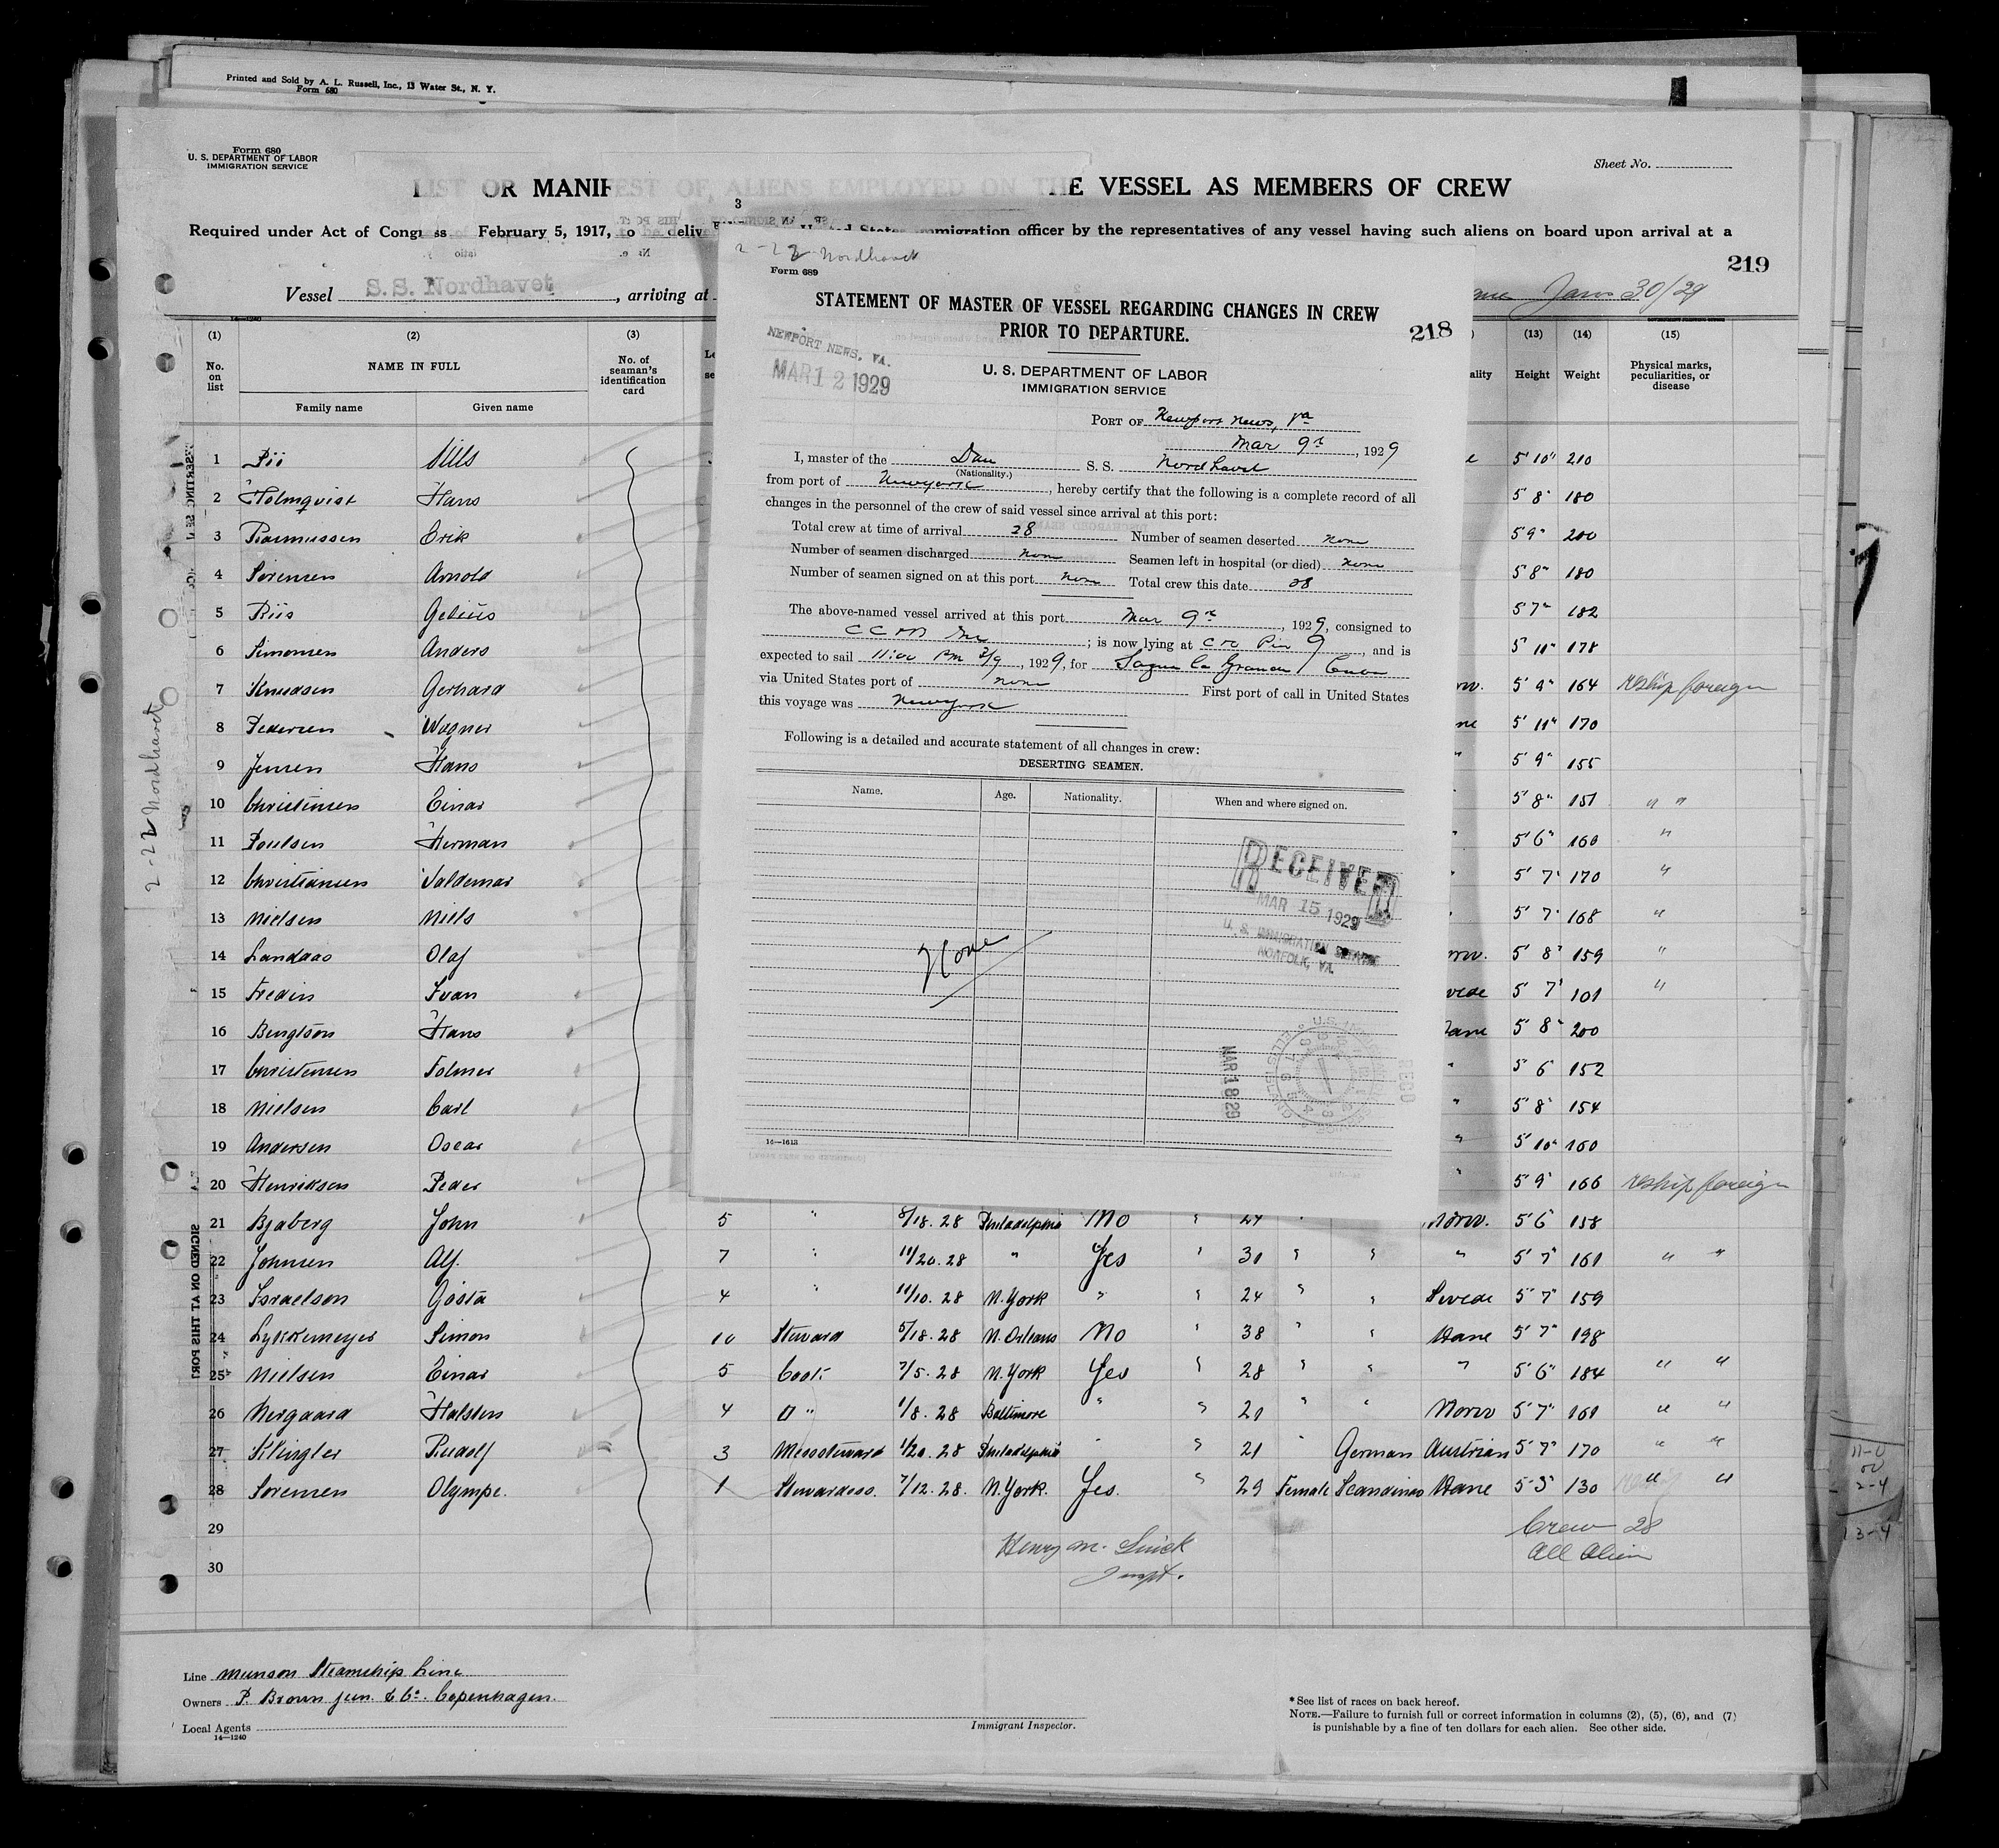 Printed and Sold by A. L. Russell, Inc., 13 Water St., N. Y.
Form 680
Form 680
U. S. DEPARTMENT OF LABOR
IMMIGRATION SERVICE
Sheet No.
LIST OR MANIFEST OF ALIENS EMPLOYED ON THE VESSEL AS MEMBERS OF CREW
Required under Act of Congress February 5, 1917, to be delivered United States immigration officer by the representatives of any vessel having such aliens on board upon arrival at a
219
Vessel S.S. Nordhavet, arriving at Jan 30/29
(1) (2) (3) (13) (14) (15)
No. on list NAME IN FULL No. of seaman's identification card Height Weight Physical marks, peculiarities, or disease
Family name Given name
1 Pii Nills 5' 10" 210
2 Holmqvist Hans 5' 8" 180
3 Rasmussen Erik 5' 9" 200
4 Sörensen Arnold 5' 8" 180
5 Riis Gelius 5' 7" 182
6 Simonsen Anders 5' 11" 178
7 Knudsen Gerhard 5' 9" 164 reship foreign
8 Pedersen Wagner 5' 11" 170
9 Jensen Hans " 5' 9" 155
10 Christensen Einar 5' 8" 151 " "
11 Poulsen Herman " 5' 6" 160 "
12 Christiansen Valdemar 5' 7" 170 "
13 Nielsen Niels 5' 7" 168 "
14 Landaas Olaf 5' 8" 159 "
15 Fredin Ivan 5' 7" 101 "
16 Bengtson Hans Dane 5' 8" 200
17 Christensen Folmer " 5' 6 152
18 Nielsen Carl " 5' 8" 154
19 Andersen Oscar " 5' 10" 160
20 Henriksen Peder " 5' 9" 166 reship foreign
21 Bjaberg John 5 " 8/18. 28 Philadelphia No " 24 Norw. 5' 6" 158
22 Johnsen Alf. 7 " 11/20. 28 " Yes " 30 " " " 5' 7" 161 " "
23 Israelson Gösta 4 " 11/10. 28 N. York " " 24 " " Swede 5' 7" 159
24 Lykkemeyer Simon 10 Steward 5/18. 28 N. Orleans No " 38 " " Dane 5' 7" 198
25 Nielsen Einar 5 Cook 7/5. 28 N. York Yes " 28 " " " 5' 6" 184 " "
26 Nergaard Halsten 4 " 1/8. 28 Baltimore " " 20 " " Norw 5' 7" 161 " "
27 Klingler Rudolf 3 Messsteward 1/20. 28 Philadelphia " " 21 " German Austrian 5' 7" 170 " "
28 Sörensen Olympe. 1 Stewardess. 7/12. 28. N. York. Yes. " 29 Female Scandinav Dane 5' 5" 130 " "
29
30
Crew 28
All Alien
Henry M.
Inspt.
Line Munson Steamship Line
Owners P. Brown jun. & Co. Copenhagen.
Local Agents
14—1240
Immigrant Inspector.
* See list of races on back hereof.
NOTE.—Failure to furnish full or correct information in columns (2), (5), (6), and (7)
is punishable by a fine of ten dollars for each alien. See other side.
2-22 Nordhavet
SIGNED ON AT THIS PORT
3
2-22 Nordhavet
Form 689
STATEMENT OF MASTER OF VESSEL REGARDING CHANGES IN CREW
PRIOR TO DEPARTURE.
218
NEWPORT NEWS, VA.
MAR 12 1929
U. S. DEPARTMENT OF LABOR
IMMIGRATION SERVICE
PORT OF Newport News, Va
Mar 9th, 1929
I, master of the Dan S. S. Nordhavet
(Nationality.)
from port of Newyork, hereby certify that the following is a complete record of all
changes in the personnel of the crew of said vessel since arrival at this port:
Total crew at time of arrival 28 Number of seamen deserted none
Number of seamen discharged none Seamen left in hospital (or died) none
Number of seamen signed on at this port none Total crew this date 28
The above-named vessel arrived at this port Mar 9th, 1929, consigned to
; is now lying at C&O Pier 9, and is
expected to sail 11:00 PM 3/9, 1929, for Sagua la Grande, Cuba
via United States port of none First port of call in United States
this voyage was Newyork
Following is a detailed and accurate statement of all changes in crew:
DESERTING SEAMEN.
Name. Age. Nationality. When and where signed on.
None
RECEIVED
MAR 15 1929
U. S. IMMIGRATION SERVICE
NORFOLK, VA.
MAR 18 29
REC'D
16—1613